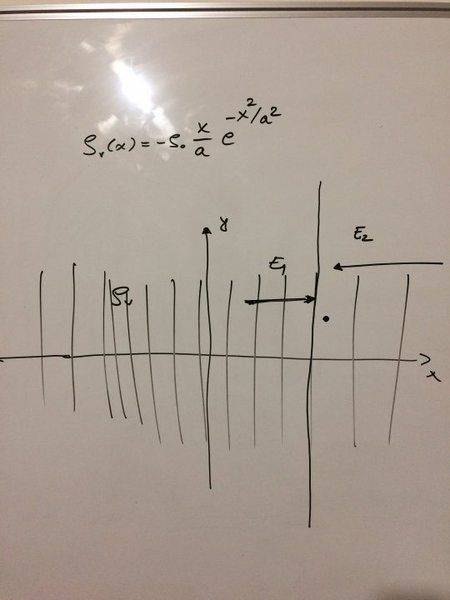 ρᵥ(x) = -ρ₀ x/a e^(-x²/a²)
y
E₂
E₁
ρᵥ
x